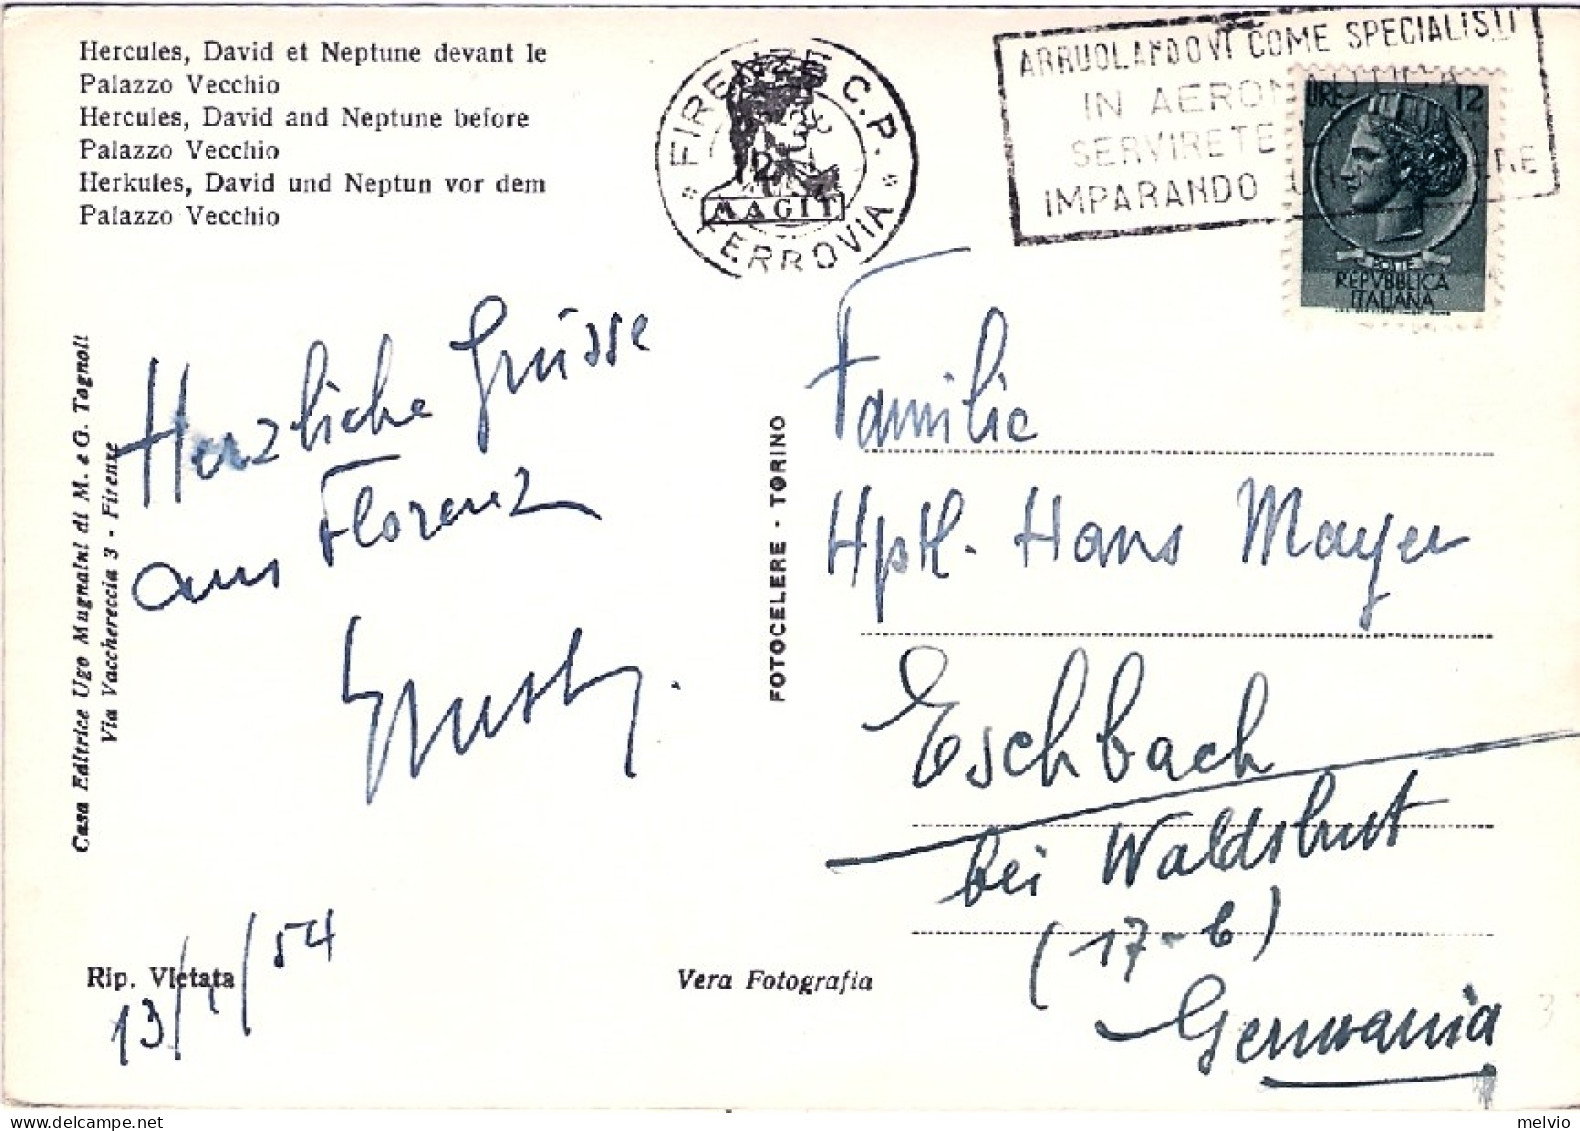 Hercules, David et Neptune devant le
Palazzo Vecchio
Hercules, David and Neptune before
Palazzo Vecchio
Herkules, David und Neptun vor dem
Palazzo Vecchio
* FIRENZE C.P. *
FERROVIA
MAGIT
ARRUOLANDOVI COME SPECIALISTI
IN AERONAUTICA
SERVIRETE
IMPARANDO
LIRE 12
POSTE
REPVBBLICA
ITALIANA
Casa Editrice Ugo Mugnaini di M. e G. Tognoli
Via Vacchereccia 3 - Firenze
Herzliche Grüsse
aus Florenz
13/1/54
Rip. Vietata
Vera Fotografia
FOTOCELERE - TORINO
Familie
Hptl. Hans Mayer
Eschbach
bei Waldshut
(17-b)
Germania
melvio